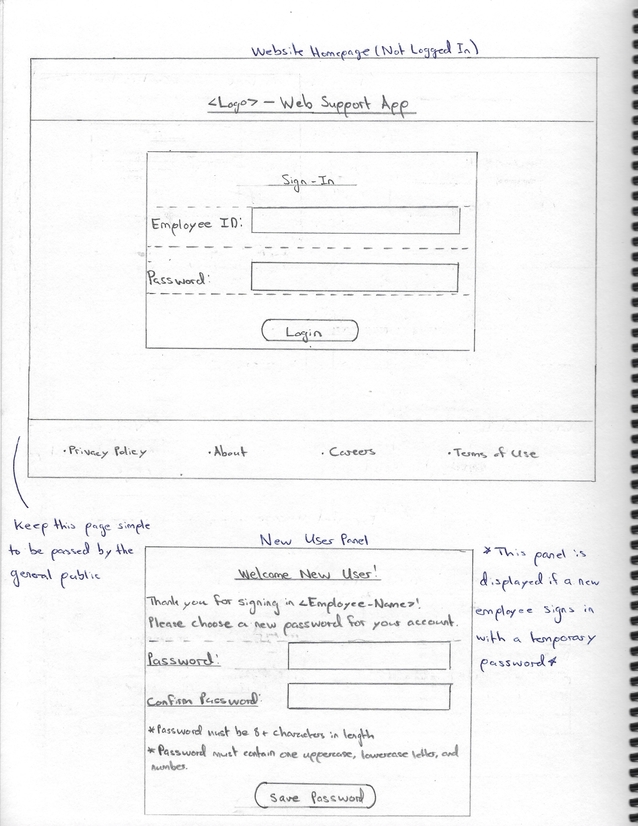 Website Homepage (Not Logged In)
<Logo> - Web Support App
Sign-In
Employee ID:
Password:
Login
• Privacy Policy • About • Careers • Terms of Use
Keep this page simple
to be passed by the
general public
New User Panel
Welcome New User!
Thank you for signing in <Employee-Name>!
Please choose a new password for your account.
Password:
Confirm Password:
*Password must be 8+ characters in length
*Password must contain one uppercase, lowercase letter, and
number.
Save Password
*This panel is
displayed if a new
employee signs in
with a temporary
password*